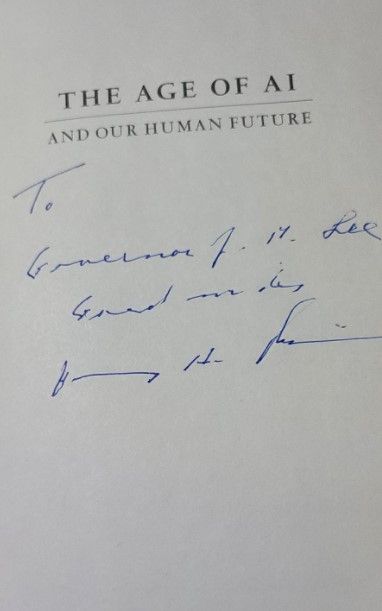 THE AGE OF AI
AND OUR HUMAN FUTURE
To
Governor J. H. Lee
Good wishes